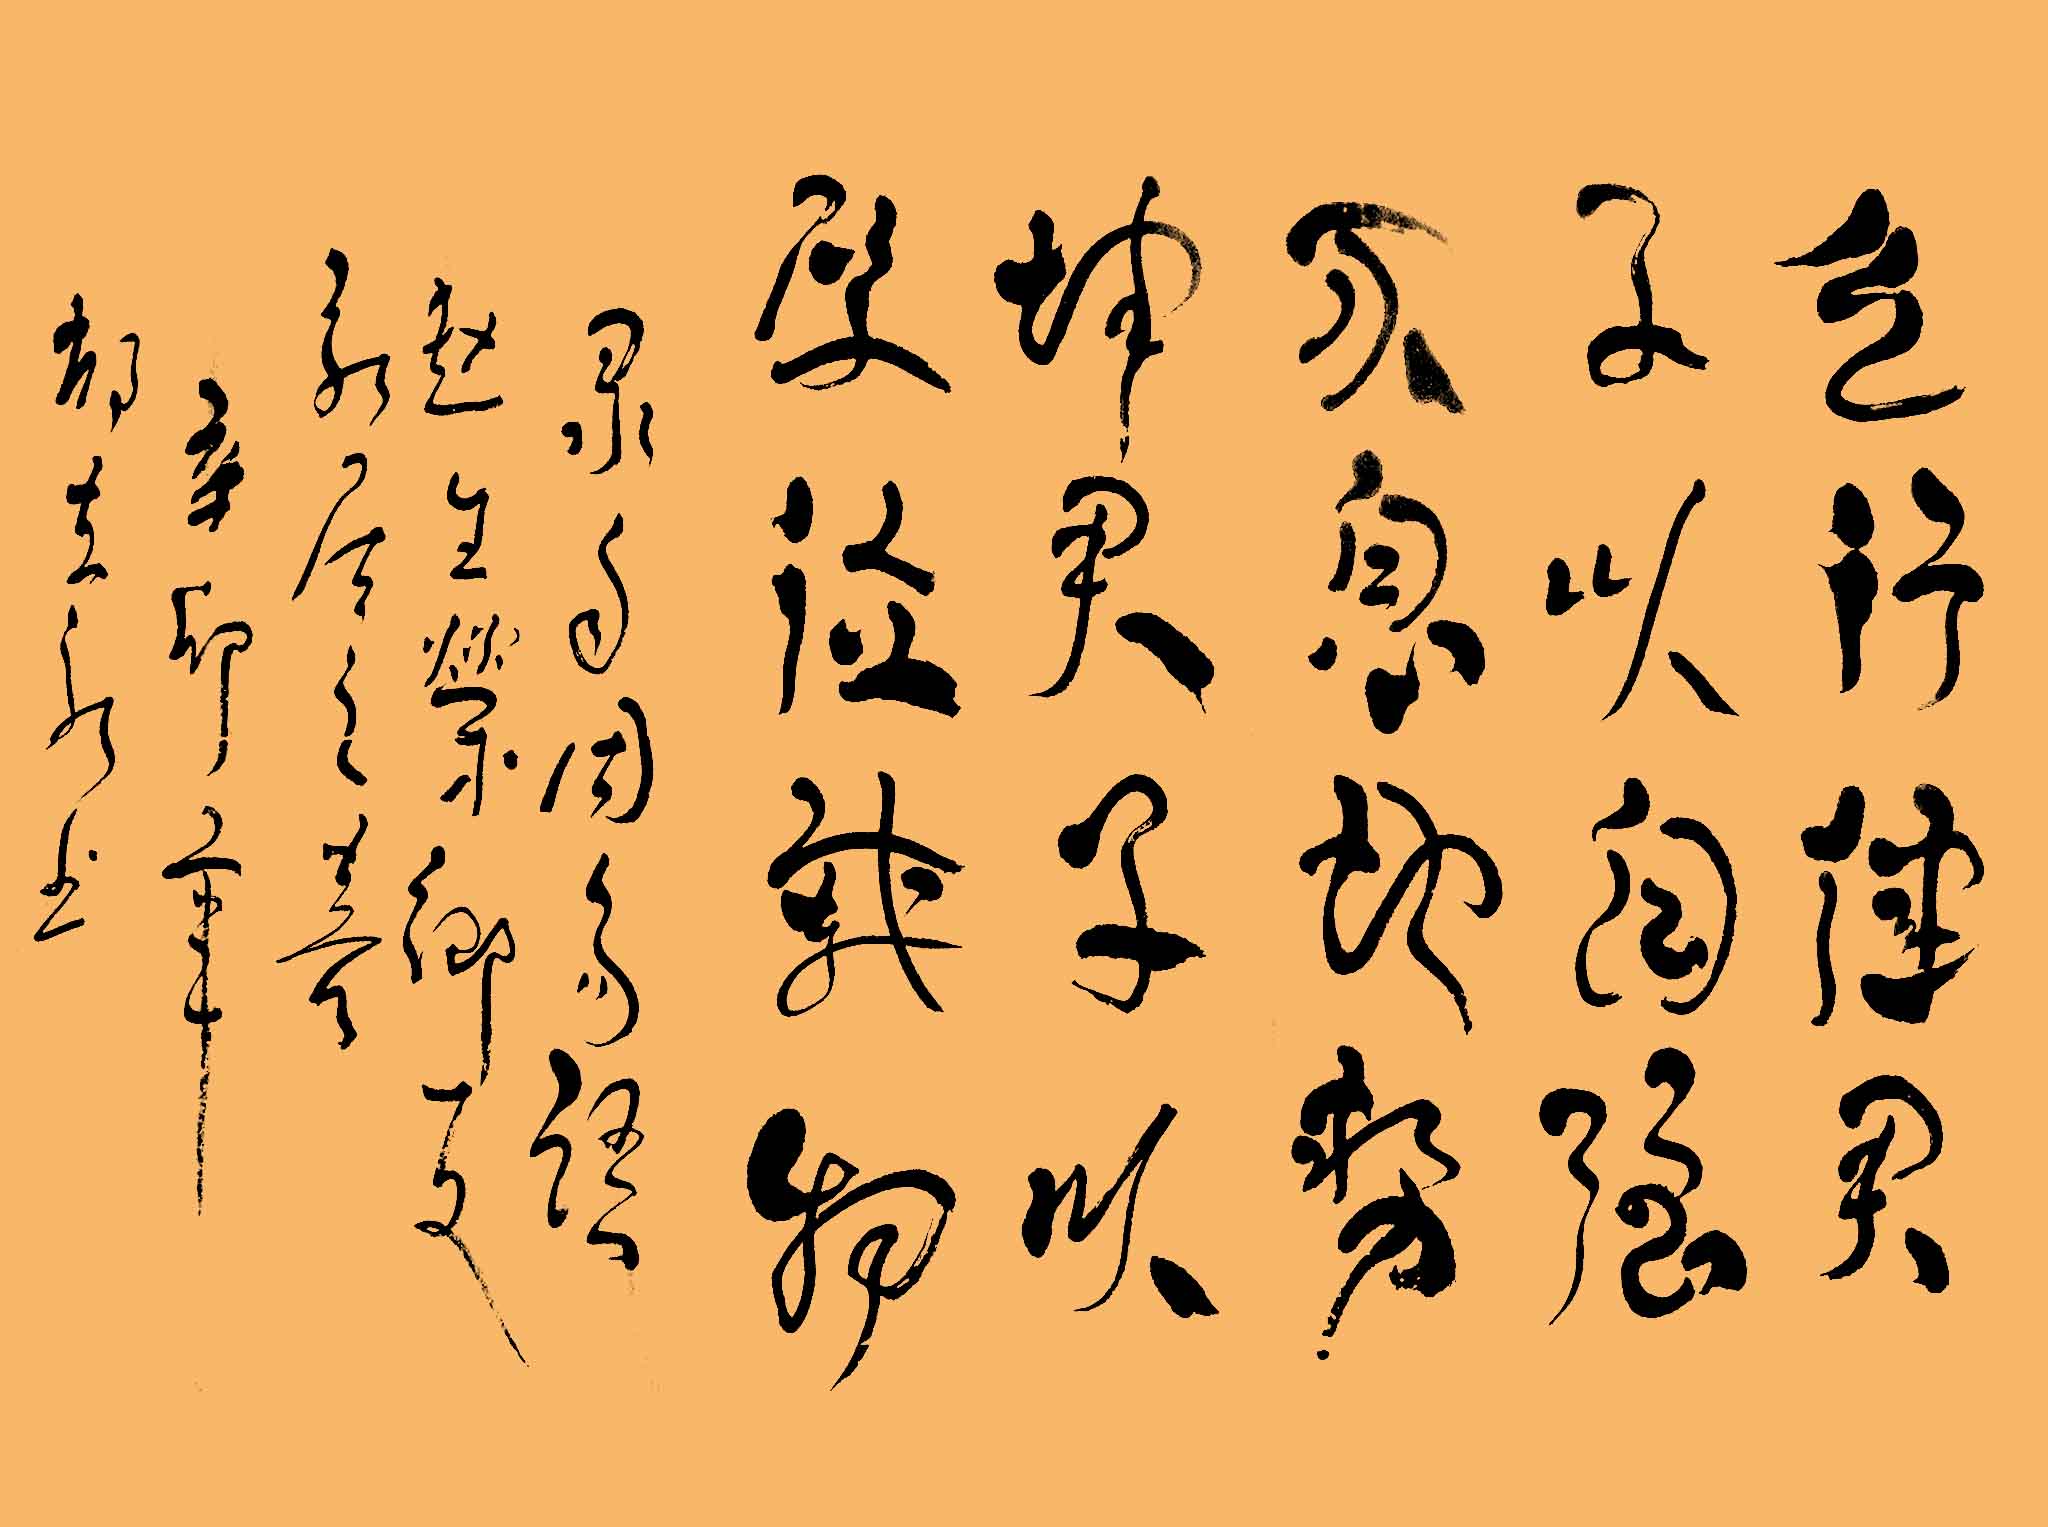 天行健君
子以自强
不息地势
坤君子以
厚德载物
录自周易语
赵生荣乡友
永居之荣
辛卯年
郝志永书